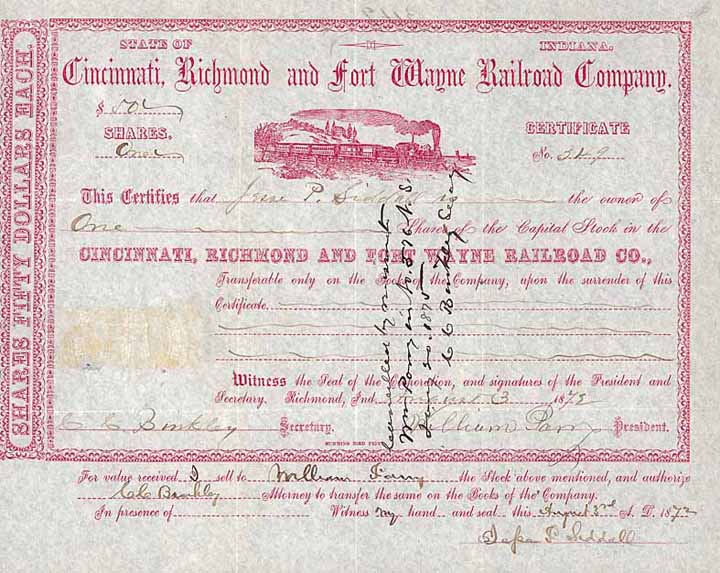 STATE OF INDIANA.
Cincinnati, Richmond and Fort Wayne Railroad Company.
$ 50
SHARES,
One
CERTIFICATE
No.
SHARES FIFTY DOLLARS EACH.
This Certifies that Jesse P. Siddall is the owner of
One Shares of the Capital Stock in the
CINCINNATI, RICHMOND AND FORT WAYNE RAILROAD CO.,
Transferable only on the Books of the Company, upon the surrender of this
Certificate
Witness the Seal of the Corporation, and signatures of the President and
Secretary. Richmond, Ind. August 3 1872
C. C. Binkley Secretary. William Parry President.
Cancelled by
Wm Parry in No. 576 N. S.
1875
C C Binkley Secy
For value received I sell to William Parry the Stock above mentioned, and authorize
C C Binkley Attorney to transfer the same on the Books of the Company.
In presence of Witness my hand and seal this August 3rd A. D. 1872
Jesse P. Siddall